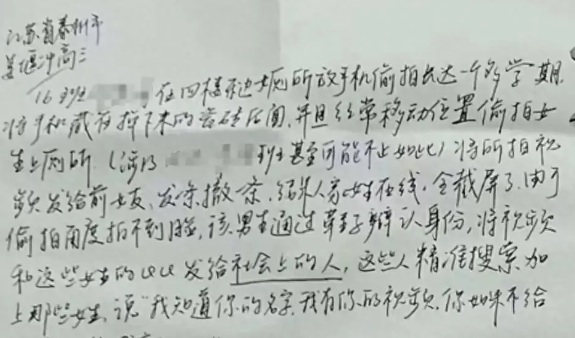 江苏省泰州市
姜堰中高三
16班 在四楼边女厕所放手机偷拍长达一个多学期,
将手机藏在掉下来的瓷砖后面,并且经常移动位置偷拍女
生上厕所(涉及 班甚至可能不止如此)将所拍视
频发给前女友,发一条,撤一条,结果人家女生在线,全截屏了.由于
偷拍角度拍不到脸,该男生通过鞋子辨认身份,将视频
和这些女生的QQ发给社会上的人,这些人精准搜索加
上那些女生,说"我知道你的名字,我有你的视频,你如果不给